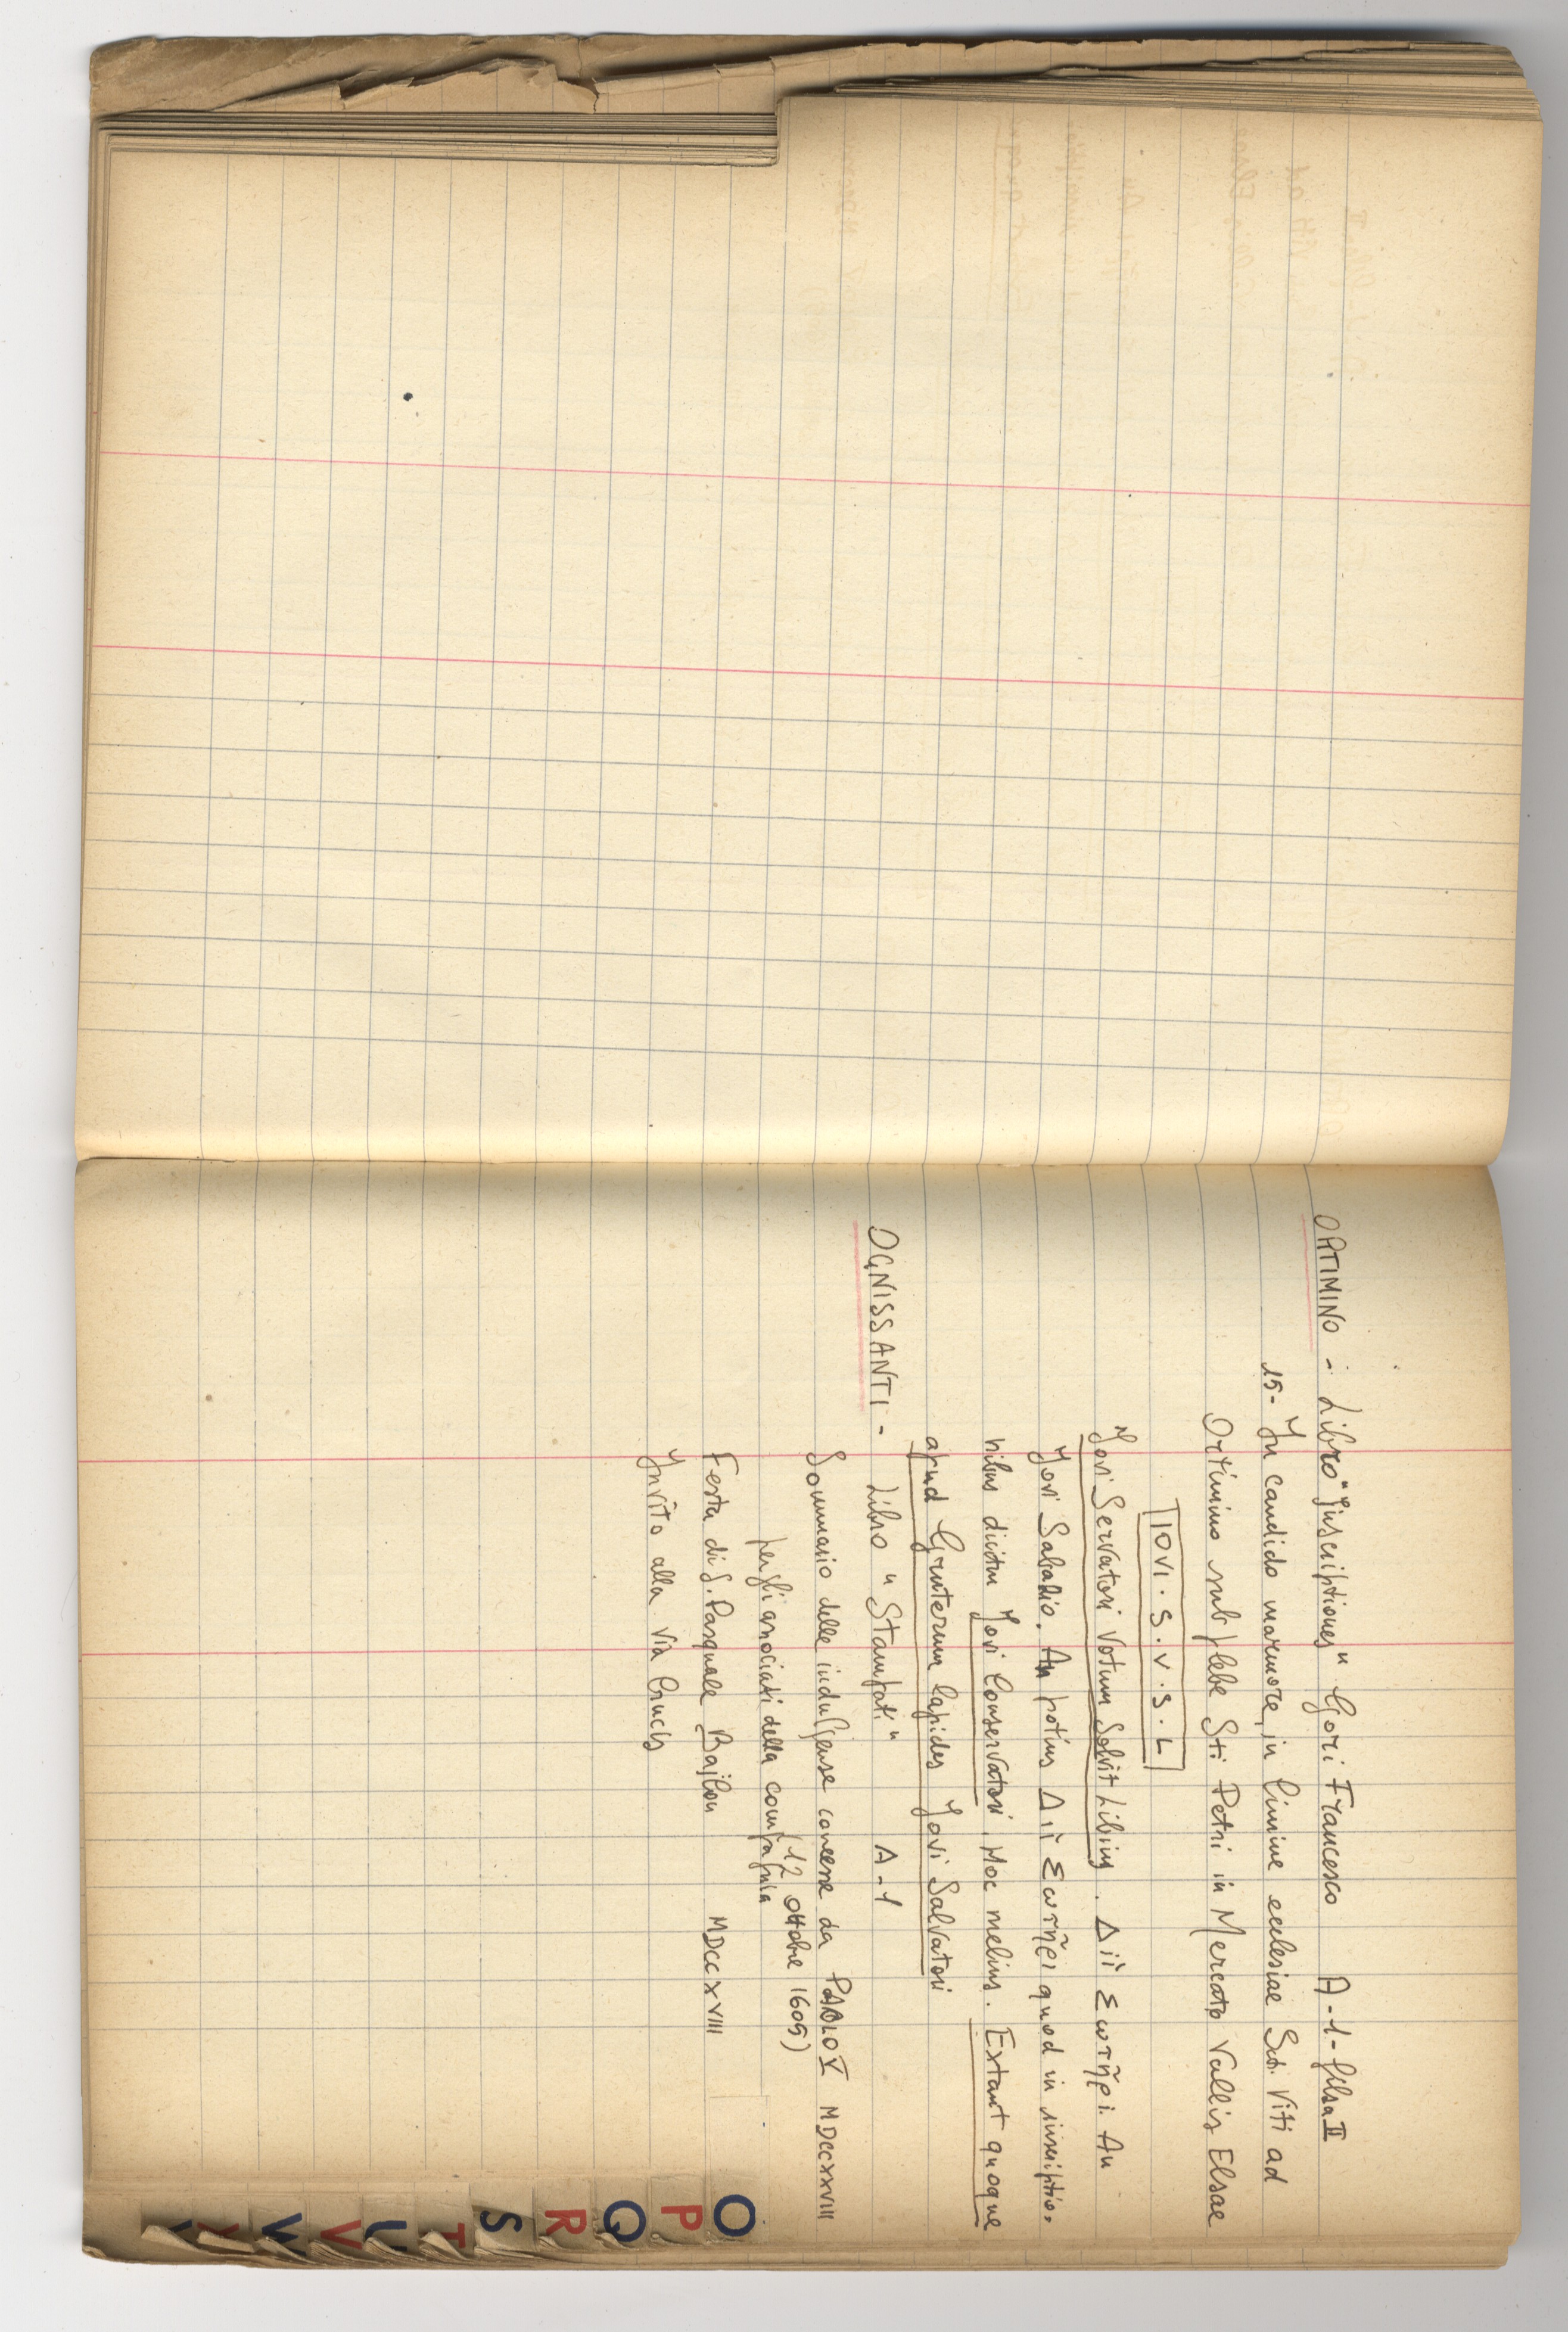 ORTIMINO - Libro "Inscriptiones" Gori Francesco A-1-filza II
15- In candido marmore, in limine ecclesiae Scti Viti ad
Ortimino sub plebe Sti Petri in Mercato Vallis Elsae
IOVI · S · V · S · L
"Jovi Servatori Votum Solvit Libius. Διì Σωτῆρι. An
Jovi Sabadio. An potius Διì Σωτῆρι quod in inscriptio-
nibus dicitur Jovi Conservatori. Hoc melius. Extant quoque
apud Gruterum lapides Jovi Salvatori
OGNISSANTI - Libro "Stampati" A-1
Sommario delle indulgense concesse da PAOLO V MDCCXXVIII
(12 ottobre 1609)
per gli associati della compagnia
Festa di S. Pasquale Bajlon MDCCXVIII
Invito alla Via Crucis
O
P
Q
R
S
T
U
V
W
X